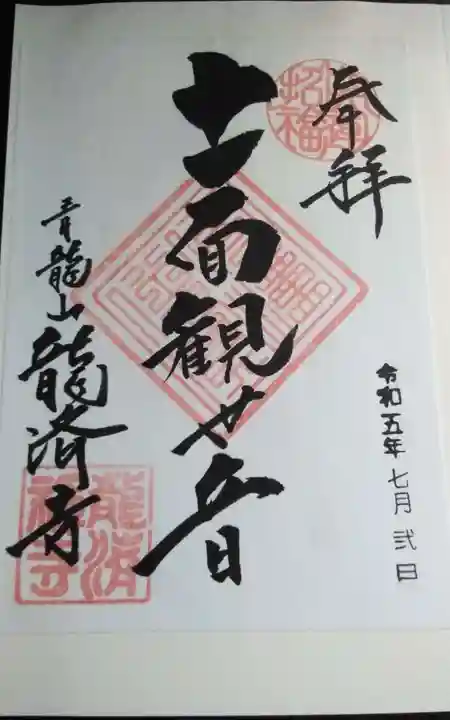 奉拝
十一面観世音
青龍山 龍済寺
令和五年 七月 弐日
招福
龍済禅寺